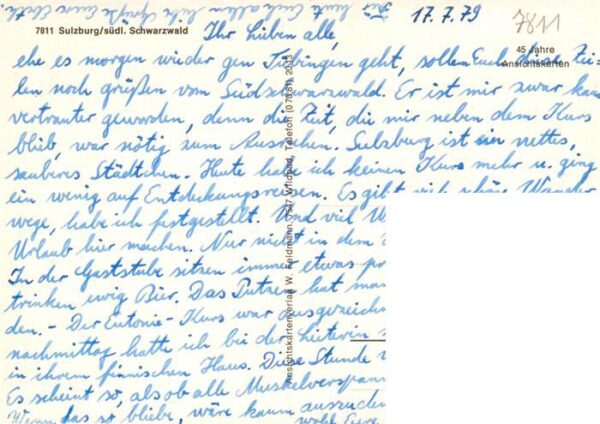 Für heute Euch allen liebe Grüße Eure
17.7.79
7811
7811 Sulzburg/südl. Schwarzwald
45 Jahre
Ansichtskarten
Ihr Lieben alle,
ehe es morgen wieder gen Tübingen geht, sollen Euch diese Zei-
len noch grüßen vom Südschwarzwald. Er ist mir zwar kaum
vertrauter geworden, denn die Zeit, die mir neben dem Kurs
blieb, war nötig zum Ausruhen. Sulzburg ist ein nettes,
sauberes Städtchen. Heute habe ich keinen Kurs mehr u. ging
ein wenig auf Entdeckungsreisen. Es gibt viel schöne Wander
wege, habe ich festgestellt. Und viel
Urlaub hier machen. Nur nicht in dem
In der Gaststube sitzen immer etwas
trinken ewig Bier. Das Putzen hat man
den. – Der Eutonie-Kurs war ausgezeich
nachmittag hatte ich bei der Leiterin
in ihrem finnischen Haus. Diese Stunde
Es scheint so, als ob alle Muskelverspann
Wenn das so bliebe, wäre kaum auszuden
wohl Eure
Ansichtskartenverlag W. Feldmann, 7547 Wildbad, Telefon (07081) 2013